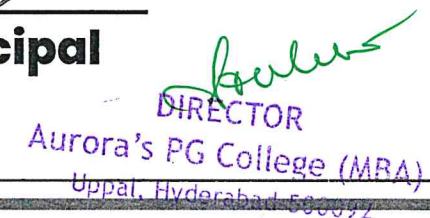 cipal
DIRECTOR
Aurora's PG College (MBA)
Uppal, Hyderabad